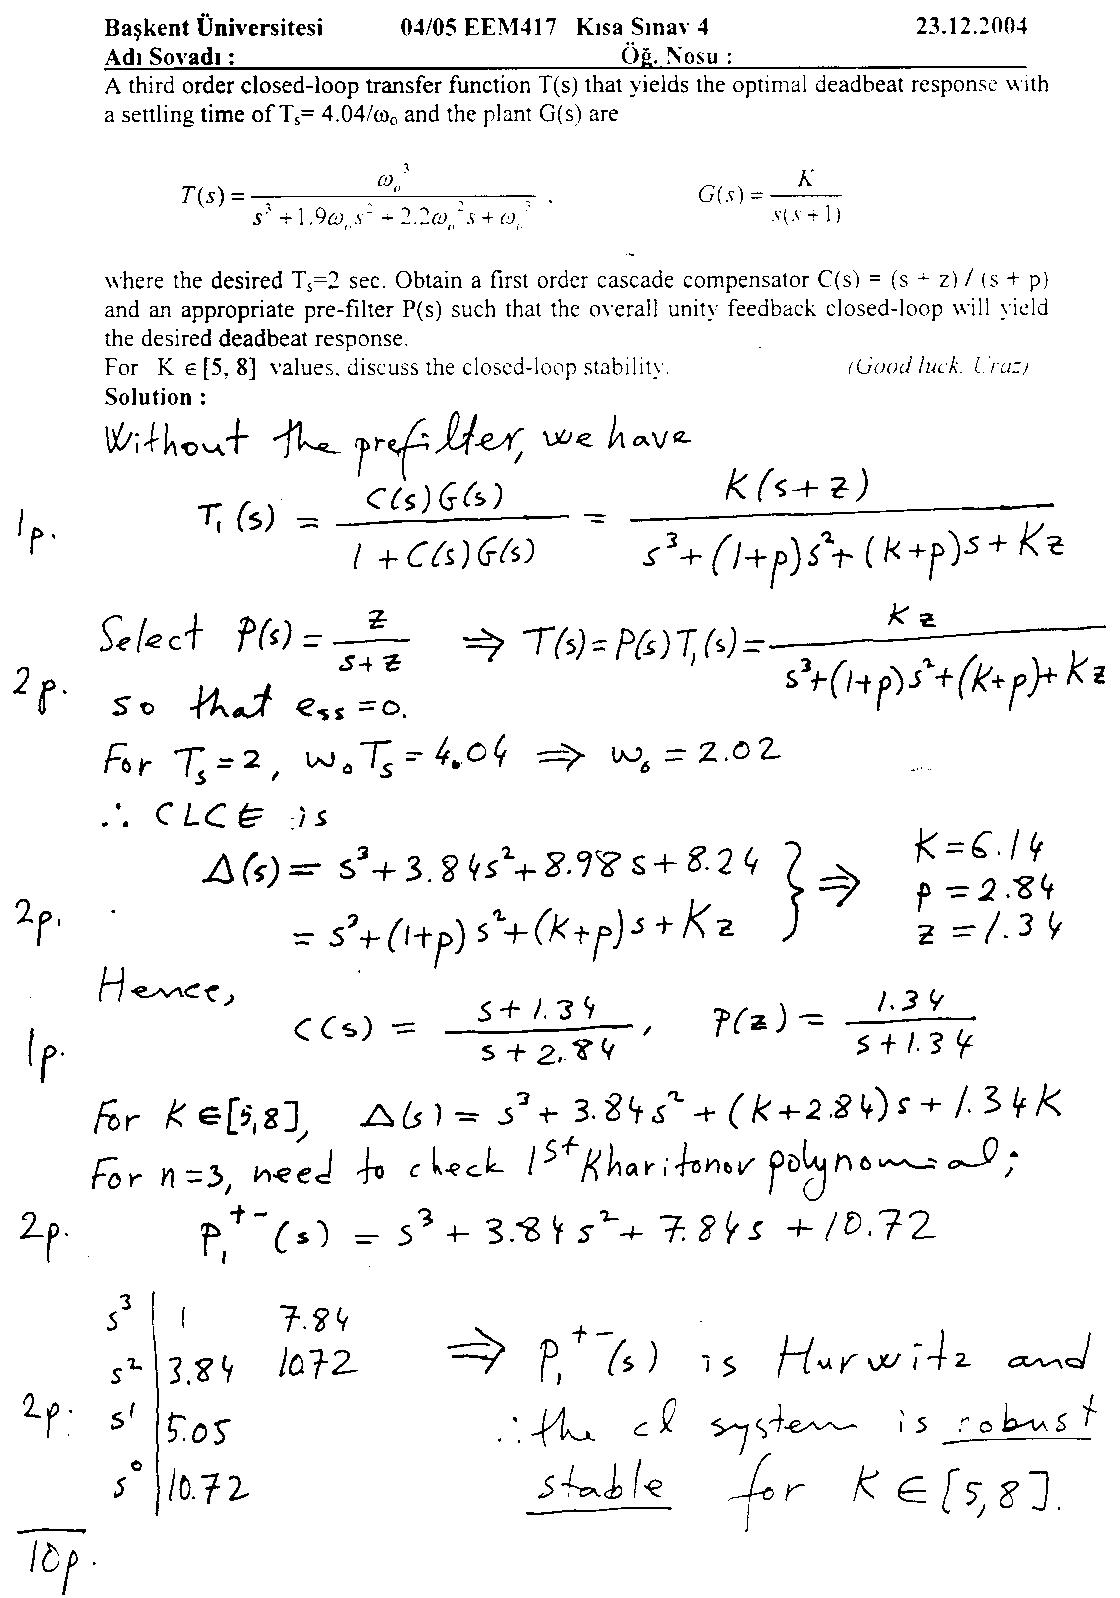 Başkent Üniversitesi 04/05 EEM417 Kısa Sınav 4 23.12.2004
Adı Soyadı : Öğ. Nosu :
A third order closed-loop transfer function T(s) that yields the optimal deadbeat response with
a settling time of Tₛ= 4.04/ω₀ and the plant G(s) are
T(s) = ωₒ³ / (s³ + 1.9ωₒs² + 2.2ωₒ²s + ωₒ³) . G(s) = K / (s(s + 1))
where the desired Tₛ=2 sec. Obtain a first order cascade compensator C(s) = (s + z) / (s + p)
and an appropriate pre-filter P(s) such that the overall unity feedback closed-loop will yield
the desired deadbeat response.
For K ∈ [5, 8] values, discuss the closed-loop stability. (Good luck. Uraz)
Solution :
Without the prefilter, we have
1p. T₁(s) = C(s)G(s) / (1 + C(s)G(s)) = K(s+z) / (s³+(1+p)s²+(K+p)s+Kz)
Select P(s) = z / (s+z) ⇒ T(s)=P(s)T₁(s)= Kz / (s³+(1+p)s²+(K+p)+Kz
2p. so that eₛₛ=0.
For Tₛ=2, ω₀Tₛ=4.04 ⇒ ω₀=2.02
∴ CLCE is
Δ(s) = s³+3.84s²+8.98s+8.24 } ⇒ K=6.14
p=2.84
2p. = s³+(1+p)s²+(K+p)s+Kz z=1.34
Hence,
1p. C(s) = (s+1.34) / (s+2.84) , P(z) = 1.34 / (s+1.34)
For K∈[5,8], Δ(s) = s³+3.84s²+(K+2.84)s+1.34K
For n=3, need to check 1st Kharitonov polynomial;
2p. P₁⁺⁻(s) = s³+3.84s²+7.84s+10.72
s³ | 1 7.84
s² | 3.84 10.72 ⇒ P₁⁺⁻(s) is Hurwitz and
2p. s¹ | 5.05 ∴ the cl system is robust
s⁰ | 10.72 stable for K∈[5,8].
10p.